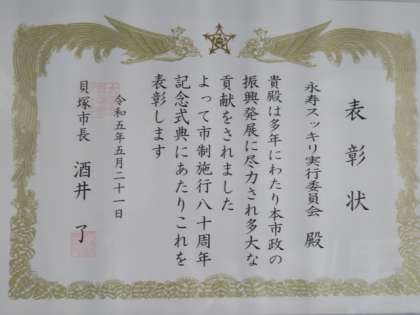 表彰状
永寿スッキリ実行委員会 殿
貴殿は多年にわたり本市政の
振興発展に尽力され多大な
貢献をされました
よって市制施行八十周年
記念式典にあたりこれを
表彰します
令和五年五月二十一日
貝塚市長 酒井 了